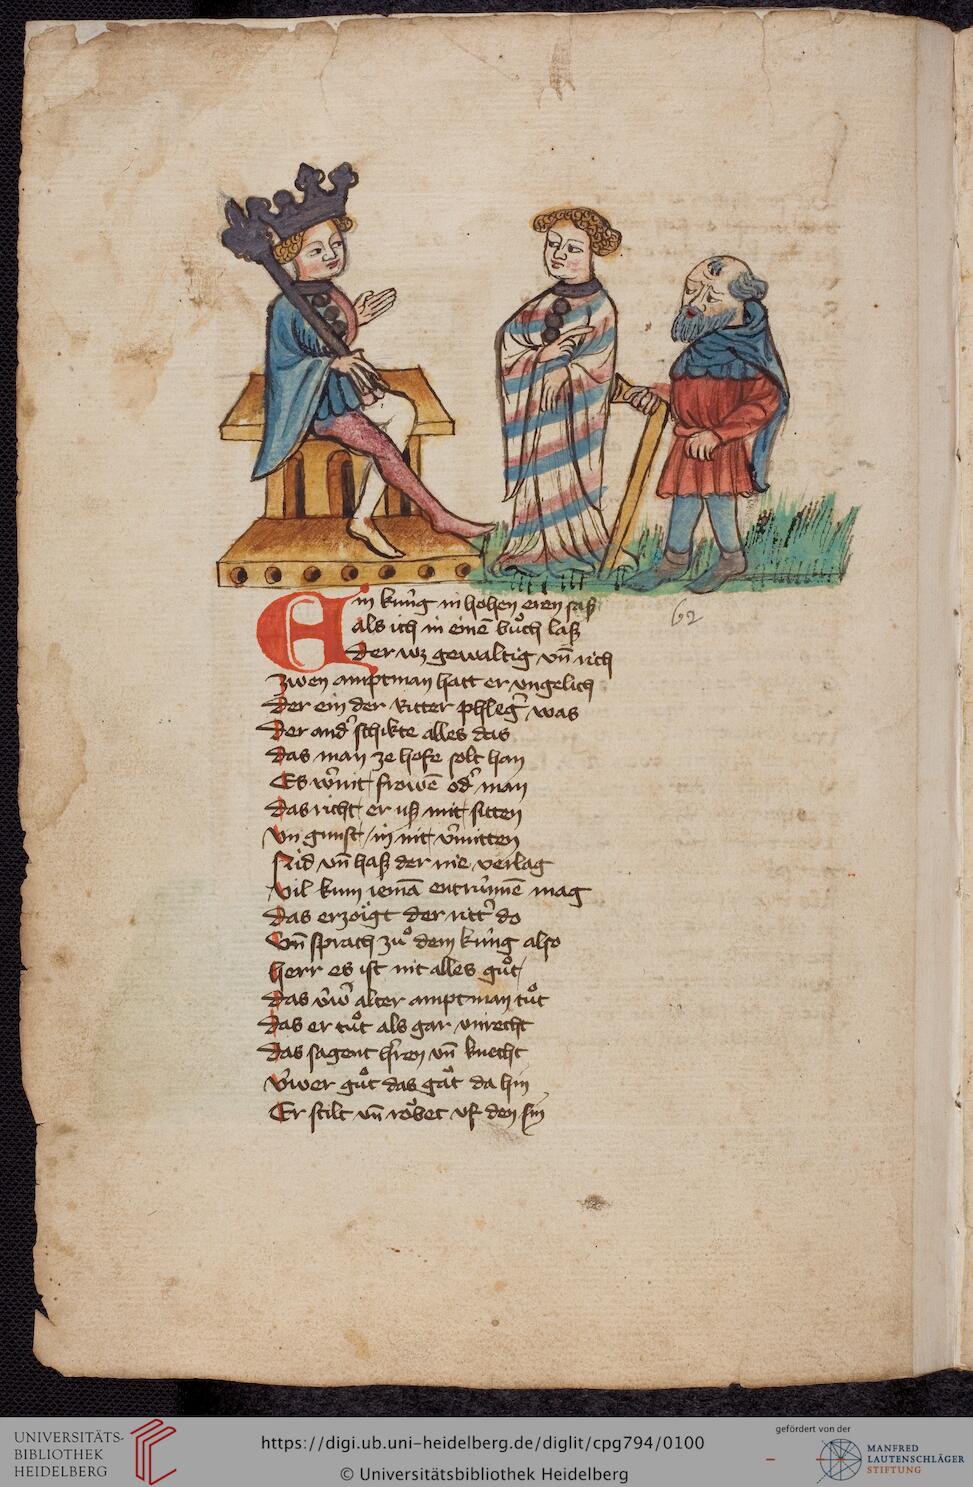 Ein kúng in hohen eren saß
als ich in einē bůch laß
Der wz gewaltig vn̄ rich
zwen amptman hatt er vngelich
Der ein der Ritter phleg̕ was
Der and̕ schikte alles das
Das man ze hofe solt han
Es w̕nit frowē od̕ man
Das richt er uß mit sitten
vn gunst in nit v̕mitten
Nid vn̄ haß der nie verlag
vil kum iemā entrúnnē mag
Das erzöigt der ritt̕ do
Vn̄ sprach zů dem kúng also
herr es ist nit alles gůt
Das v́w̕ alter amptman tůt
Das er tůt als gar vnrecht
Das sagent h̕ren vn̄ knecht
v́wer gůt das gat da hin
Er stilt vn̄ robet vf den sin
62
UNIVERSITÄTS-
BIBLIOTHEK
HEIDELBERG
https://digi.ub.uni-heidelberg.de/diglit/cpg794/0100
© Universitätsbibliothek Heidelberg
gefördert von der
MANFRED
LAUTENSCHLÄGER
STIFTUNG